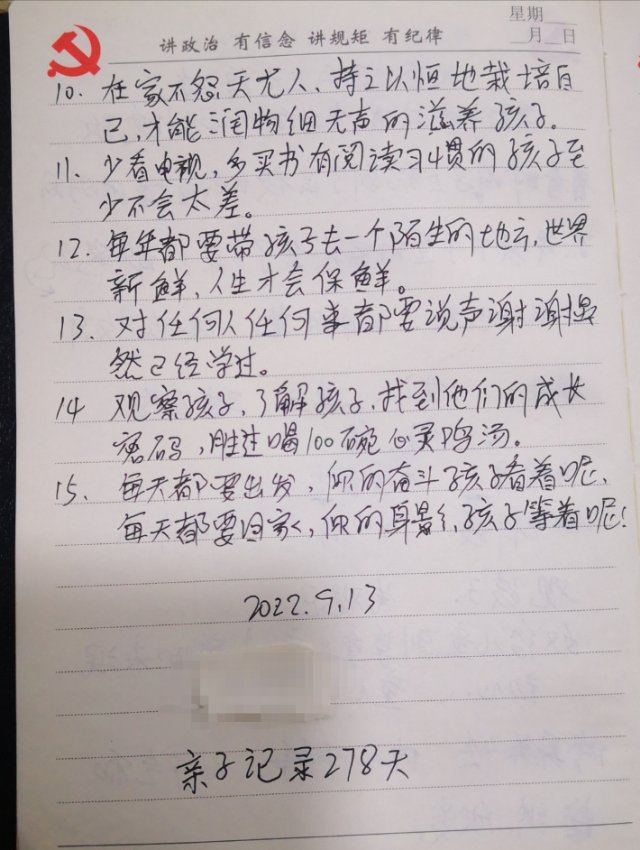 星期
讲政治 有信念 讲规矩 有纪律
月 日
10. 在家不怨天尤人、持之以恒地栽培自
己,才能润物细无声的滋养孩子。
11. 少看电视,多买书有阅读习惯的孩子至
少不会太差。
12. 每年都要带孩子去一个陌生的地方,世界
新鲜,人生才会保鲜。
13. 对任何人任何事都要说声谢谢虽
然已经学过。
14 观察孩子,了解孩子,找到他们的成长
密码,胜过喝100碗心灵鸡汤。
15. 每天都要出发,你的奋斗孩子看着呢、
每天都要回家,你的身影,孩子等着呢!
2022.9.13
亲子记录278天